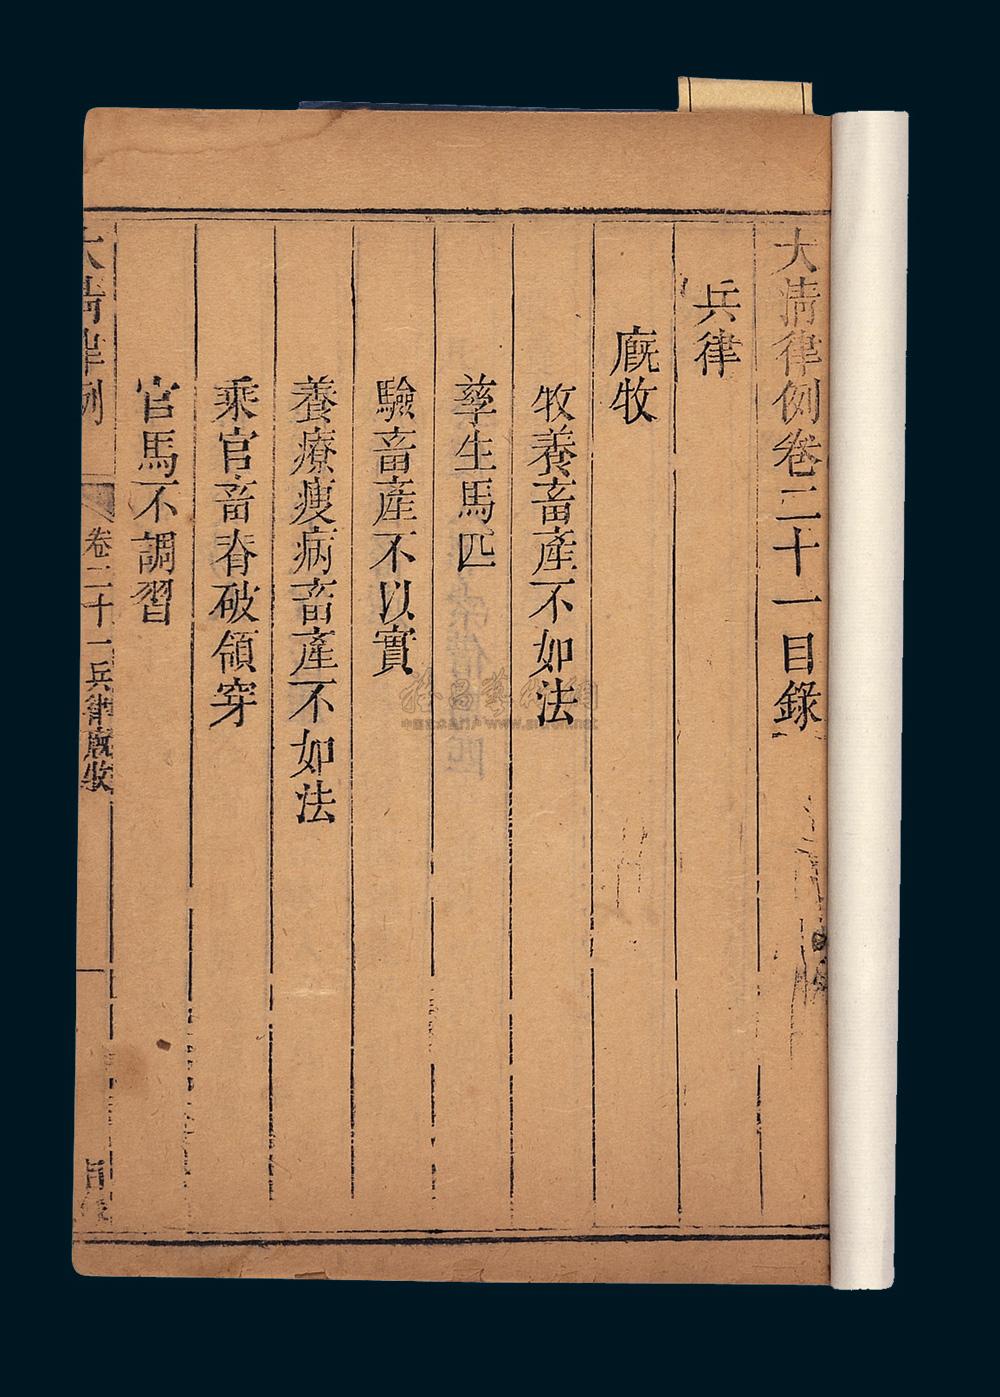 大清律例卷二十一目錄
兵律
廐牧
牧養畜產不如法
孳生馬匹
驗畜產不以實
養療瘦病畜產不如法
乘官畜脊破領穿
官馬不調習
大清律例
卷二十一兵律廐牧